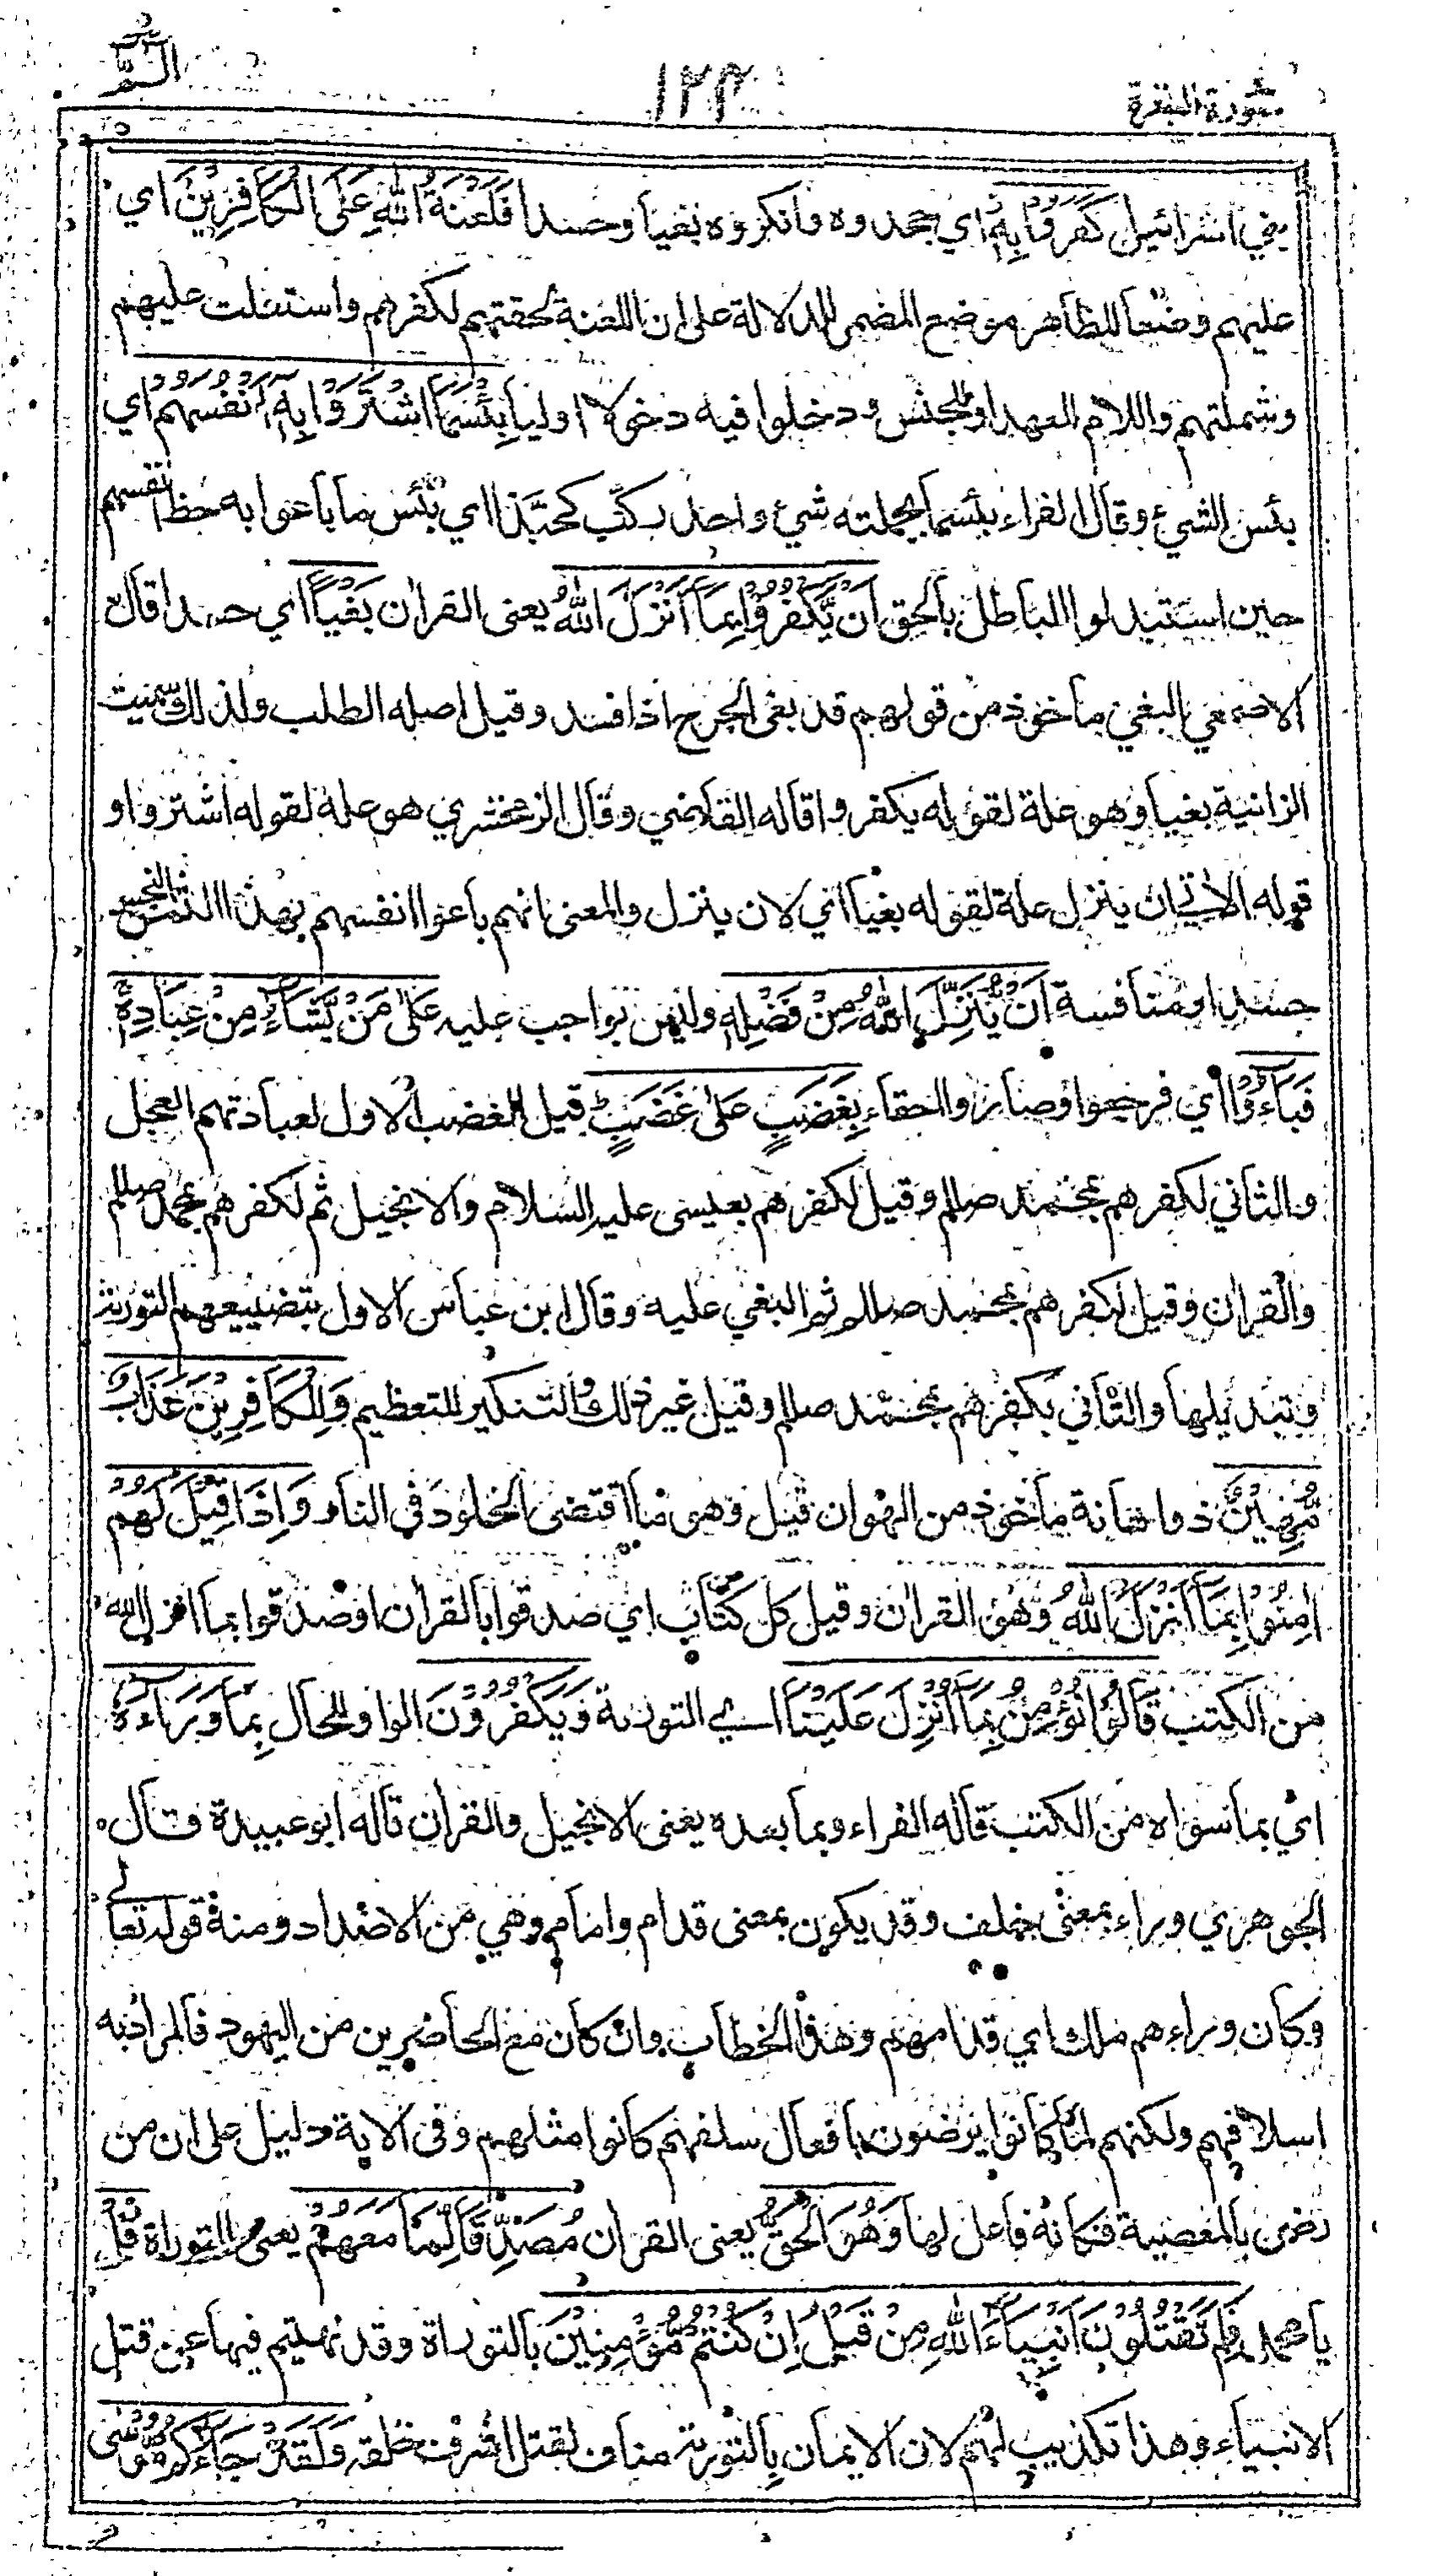 سورة البقرة
١٢٣
الٓمّٓ
بني اسرائيل كَفَرُوْا بِهٖ اي جحدوه وانكروه بغيا وحسدا فَلَعْنَةُ اللّٰهِ عَلَى الْكَافِرِيْنَ اي
عليهم وضعا للظاهر موضع المضمر للدلالة على ان اللعنة لحقتهم لكفرهم واستعلت عليهم
وشملتهم واللام للعهد او للجنس ودخلوا فيه دخولا اوليا بِئْسَمَا اشْتَرَوْا بِهٖٓ اَنْفُسَهُمْ اي
بئس الشيئ وقال الفراء بئسما بجملته شيئ واحد ركب كحبّذا اي بئس ما باعوا به حظ انفسهم
حين استبدلوا الباطل بالحق اَنْ يَّكْفُرُوْا بِمَآ اَنْزَلَ اللّٰهُ يعنى القران بَغْيًا اي حسدا قال
الاصمعي البغي ماخوذ من قولهم قد بغى الجرح اذا فسد وقيل اصله الطلب ولذلك سميت
الزانية بغيا وهو علة لقوله يكفروا قاله القاضي وقال الزمخشري هو علة لقوله اشتروا و
قوله الاتي ان ينزل علة لقوله بغيا اي لان ينزل والمعنى انهم باعوا انفسهم بهذا الثمن البخس
حسدا ومنافسة اَنْ يُّنَزِّلَ اللّٰهُ مِنْ فَضْلِهٖ وليس بواجب عليه عَلٰى مَنْ يَّشَآءُ مِنْ عِبَادِهٖ
فَبَآءُوْا اي فرجعوا وصاروا احقاء بِغَضَبٍ عَلٰى غَضَبٍ قيل الغضب الاول لعبادتهم العجل
والثاني لكفرهم بمحمد صللم وقيل لكفرهم بعيسى عليه السلام والانجيل ثم لكفرهم بمحمد صللم
والقران وقيل لكفرهم بمحمد صللم ثم البغي عليه وقال ابن عباس الاول بتضييعهم التورية
وتبديلها والثاني بكفرهم بمحمد صللم وقيل غير ذلك والتنكير للتعظيم وَلِلْكَافِرِيْنَ عَذَابٌ
مُّهِيْنٌ ذو اهانة ماخوذ من الهوان قيل وهو ما اقتضى الخلود في النار وَاِذَا قِيْلَ لَهُمْ
اٰمِنُوْا بِمَآ اَنْزَلَ اللّٰهُ وهو القران وقيل كل كتاب اي صدقوا بالقران او صدقوا بما انزل الله
من الكتب قَالُوْا نُؤْمِنُ بِمَآ اُنْزِلَ عَلَيْنَا اي التورية وَيَكْفُرُوْنَ الواو للحال بِمَا وَرَآءَهٗ
اي بما سواه من الكتب قاله الفراء وبما بعده يعنى الانجيل والقران قاله ابو عبيدة قال
الجوهري وراء بمعنى خلف وقد يكون بمعنى قدام وامام وهي من الاضداد ومنه قوله تعالى
وكان وراءهم ملك اي قدامهم وهذا الخطاب وان كان مع الحاضرين من اليهود فالمراد به
اسلافهم ولكنهم لما كانوا يرضون بافعال سلفهم كانوا مثلهم وفى الاية دليل على ان من
رضي بالمعصية فكانه فاعل لها وَهُوَ الْحَقُّ يعنى القران مُصَدِّقًا لِّمَا مَعَهُمْ يعنى التوراة قُلْ
يا محمد فَلِمَ تَقْتُلُوْنَ اَنْبِيَآءَ اللّٰهِ مِنْ قَبْلُ اِنْ كُنْتُمْ مُّؤْمِنِيْنَ بالتوراة وقد نهيتم فيها عن قتل
الانبياء وهذا تكذيب لهم لان الايمان بالتورية مناف لقتل اشرف خلقه وَلَقَدْ جَآءَكُمْ مُّوْسٰى